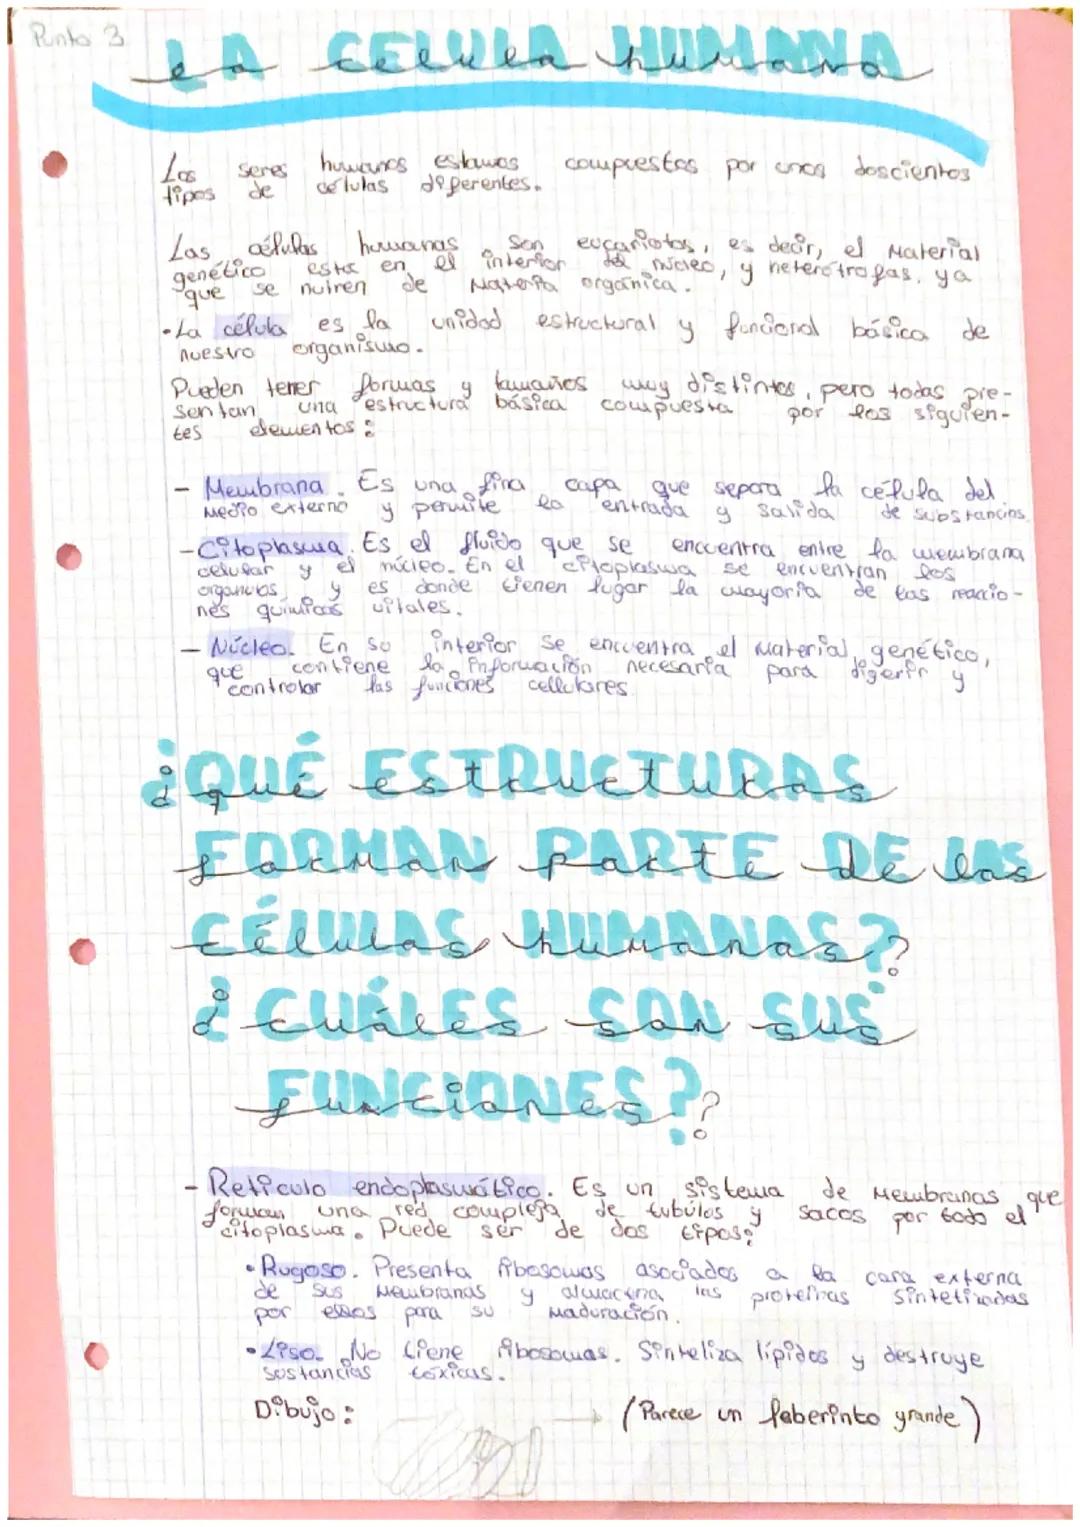 Punto 3
LA CELULA HUMANA
Los seres humanos estamos compuestos por unos doscientos
tipos de células diferentes.
Las células humanas son eucariotas, es decir, el material
genético esta en el interior del núcleo, y heterótrofas, ya
que se nutren de materia orgánica.
• La célula es la unidad estructural y funcional básica de
nuestro organismo.
Pueden tener formas y tamaños muy distintos, pero todas pre-
sentan una estructura básica compuesta por los siguien-
tes elementos:
- Membrana. Es una fina capa que separa la célula del
medio externo y permite la entrada y salida de substancias.
- Citoplasma. Es el fluido que se encuentra entre la membrana
celular y el núcleo. En el citoplasma se encuentran los
organulos y es donde tienen lugar la mayoria de las reaccio-
nes químicas vitales.
- Núcleo. En su interior se encuentra el material genético,
que contiene la información necesaria para digerir y
controlar las funciones cellulares
¿QUÉ ESTRUCTURAS
FORMAN PARTE DE LAS
CÉLULAS HUMANAS?
¿CUÁLES SON SUS
FUNCIONES?
- Retículo endoplasmático. Es un sistema de membranas que
forman una red compleja de tubúlos y sacos por todo el
citoplasma. Puede ser de dos tipos:
• Rugoso. Presenta ribosomas asociados a la cara externa
de sus membranas y almacena las proteínas sintetizadas
por ellos para su maduración.
• Liso. No tiene ribosomas. Sinteliza lípidos y destruye
sustancias tóxicas.
Dibujo: → (Parece un laberinto grande)